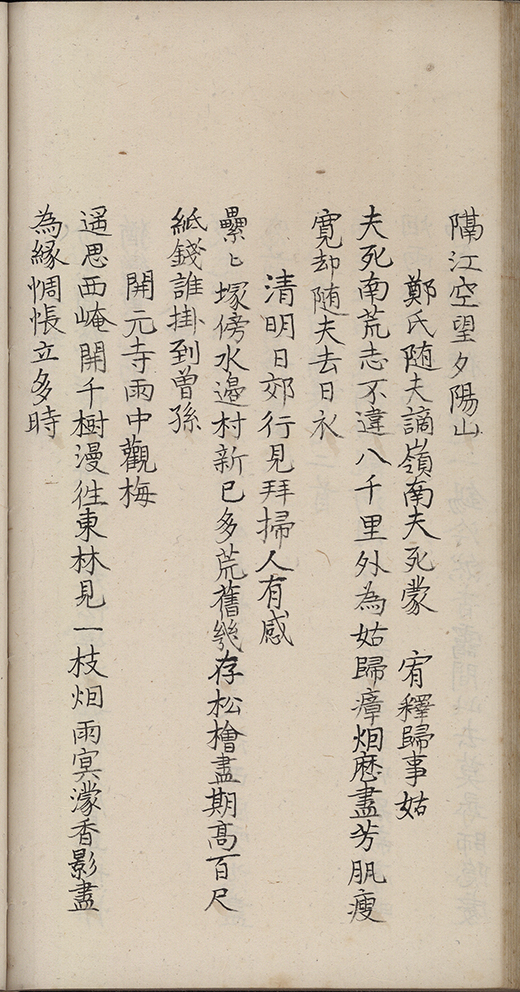 隔江空望夕陽山
鄭氏随夫謫嶺南夫死蒙　宥釋歸事姑
夫死南荒志不違八千里外為姑歸瘴烟歴盡芳肌瘦
寛却随夫去日衣
清明日郊行見拜掃人有感
纍〻塚傍水邉村新已多荒舊幾存松檜盡期高百尺
紙錢誰掛到曽孫
開元寺雨中觀梅
遥思西崦開千樹漫徃東林見一枝烟雨冥濛香影盡
為縁惆悵立多時